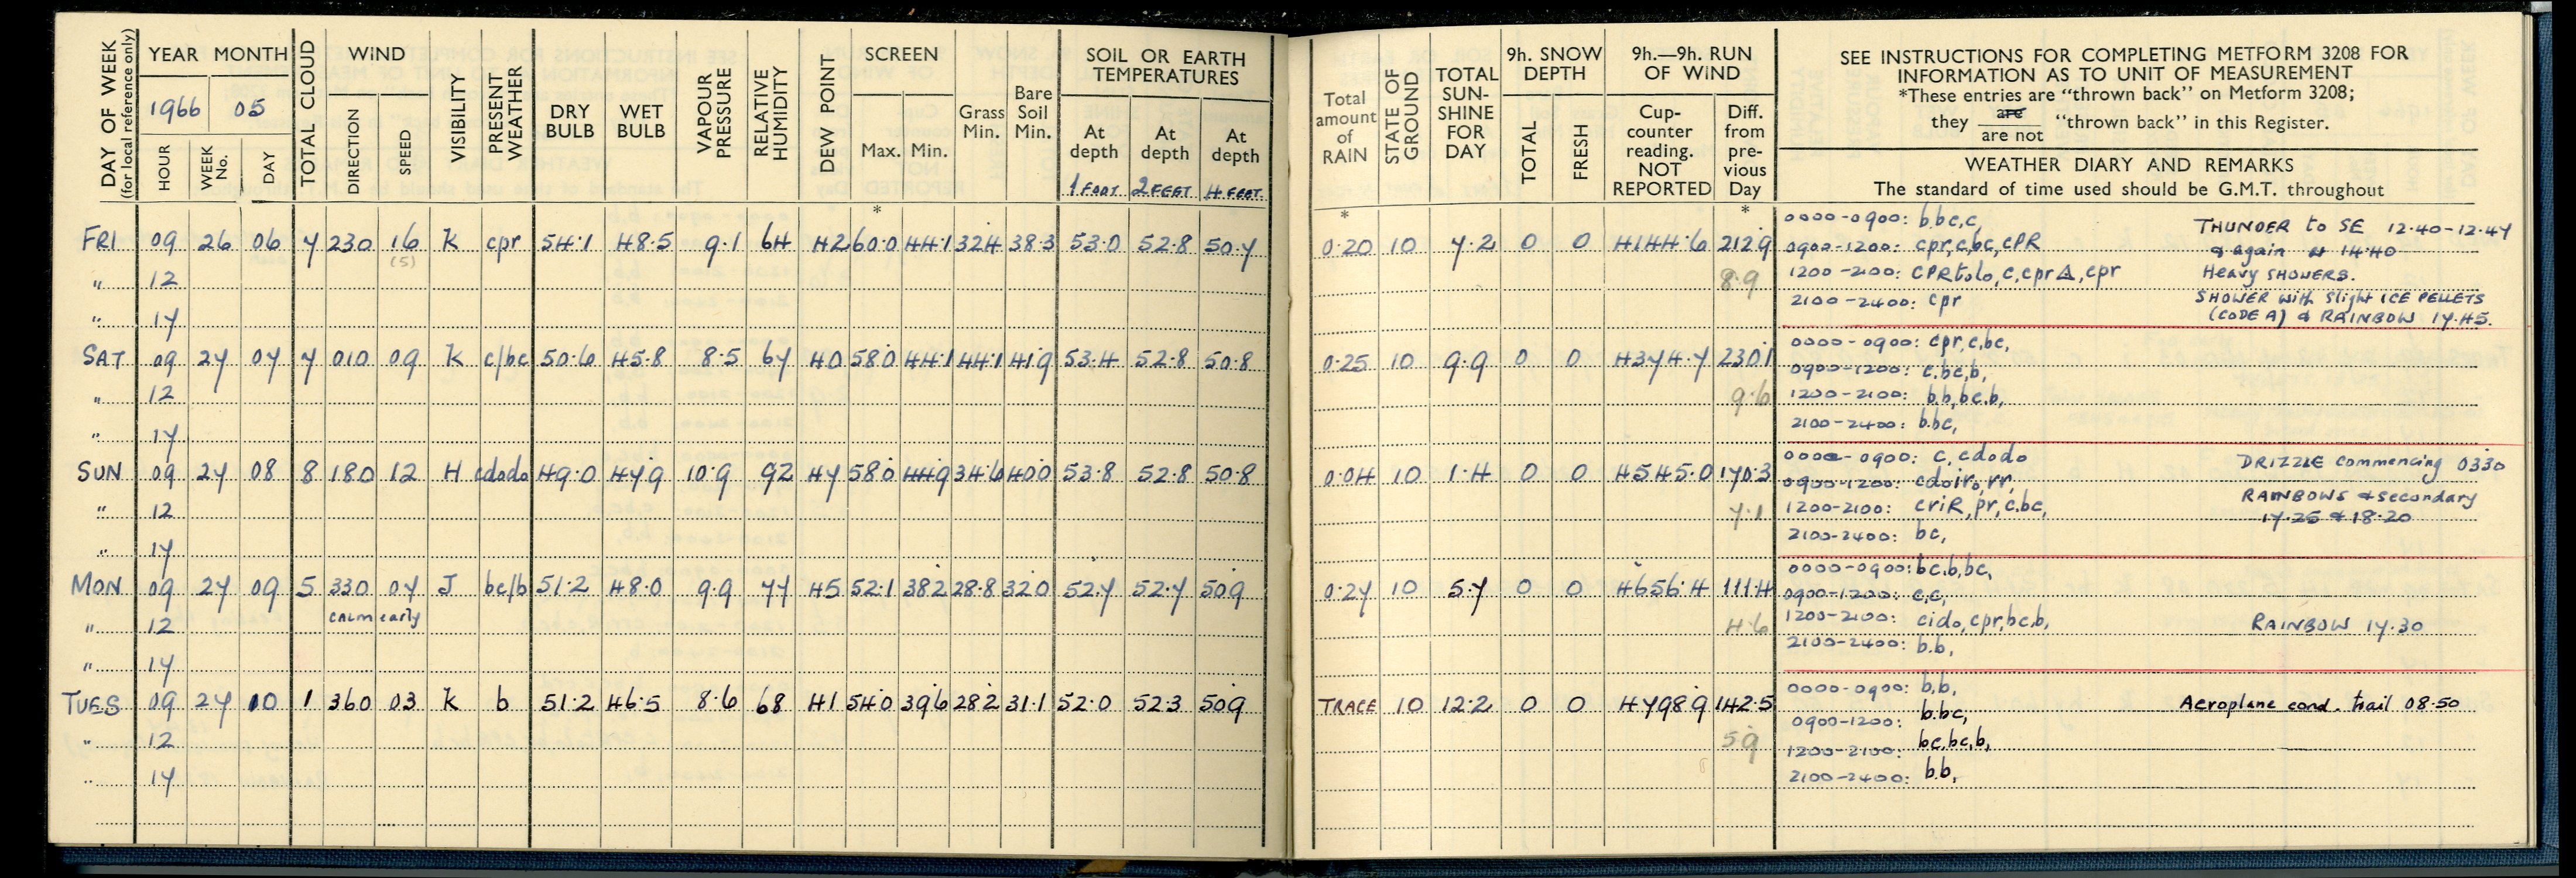 DAY OF WEEK (for local reference only) YEAR MONTH TOTAL CLOUD WIND VISIBILITY PRESENT WEATHER DRY BULB WET BULB VAPOUR PRESSURE RELATIVE HUMIDITY DEW POINT SCREEN Grass Min. Bare Soil Min. SOIL OR EARTH TEMPERATURES
1966 05
HOUR WEEK No. DAY DIRECTION SPEED Max. Min. At depth At depth At depth
1 FOOT 2 FEET 4 FEET
*
FRI 09 26 06 7 230 16 K cpr 54.1 48.5 9.1 64 42 60.0 44.1 32.4 38.3 53.0 52.8 50.7
(5)
" 12
" 17
SAT 09 27 07 7 010 09 K c/bc 50.6 45.8 8.5 67 40 58.0 44.1 44.1 41.9 53.4 52.8 50.8
" 12
" 17
SUN 09 27 08 8 180 12 H cdodo 49.0 47.9 10.9 92 47 58.0 44.9 34.6 40.0 53.8 52.8 50.8
" 12
" 17
MON 09 27 09 5 330 07 J bc/b 51.2 48.0 9.9 77 45 52.1 38.2 28.8 32.0 52.7 52.7 50.9
" 12 CALM early
" 17
TUES 09 27 10 1 360 03 K b 51.2 46.5 8.6 68 41 54.0 39.6 28.2 31.1 52.0 52.3 50.9
" 12
" 17
Total amount of RAIN STATE OF GROUND TOTAL SUN-SHINE FOR DAY 9h. SNOW DEPTH 9h.—9h. RUN OF WIND
TOTAL FRESH Cup-counter reading. NOT REPORTED Diff. from pre-vious Day
SEE INSTRUCTIONS FOR COMPLETING METFORM 3208 FOR
INFORMATION AS TO UNIT OF MEASUREMENT
*These entries are "thrown back" on Metform 3208;
they are / are not "thrown back" in this Register.
WEATHER DIARY AND REMARKS
The standard of time used should be G.M.T. throughout
* *
0.20 10 7.2 0 0 4144.6 212.9
8.9
0000-0900: b bc,c, THUNDER to SE 12.40-12.47
0900-1200: cpr,c,bc,cPR & again at 14.40
1200-2100: CPRtolo,c,cpr△,cpr Heavy SHOWERS.
2100-2400: cpr SHOWER with slight ICE PELLETS
(CODE A) & RAINBOW 17.45.
0.25 10 9.9 0 0 4374.7 230.1
9.6
0000-0900: cpr,c,bc,
0900-1200: c.bc,b,
1200-2100: b.b,bc,b,
2100-2400: b.bc,
0.04 10 1.4 0 0 4545.0 170.3
7.1
0000-0900: c, cdodo DRIZZLE commencing 0330
0900-1200: cdoiro,rr, RAINBOWS & secondary
1200-2100: criR,pr,c.bc, 17.25 & 18.20
2100-2400: bc,
0.27 10 5.7 0 0 4656.4 111.4
4.6
0000-0900: bc.b,bc,
0900-1200: c,c,
1200-2100: cido,cpr,bc,b, RAINBOW 17.30
2100-2400: b.b,
TRACE 10 12.2 0 0 4798.9 142.5
5.9
0000-0900: b,b, Aeroplane cond. trail 08.50
0900-1200: b.bc,
1200-2100: bc,bc,b,
2100-2400: b.b,